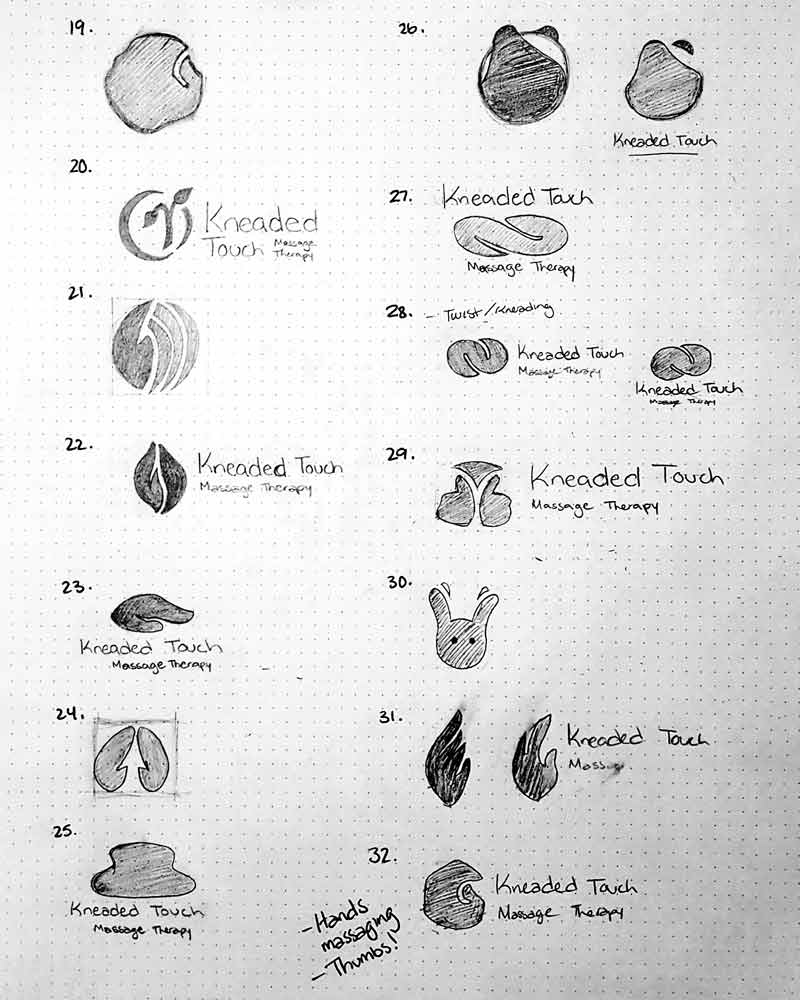 19.
20.
Kneaded
Touch Massage
Therapy
21.
22.
Kneaded Touch
Massage Therapy
23.
Kneaded Touch
Massage Therapy
24.
25.
Kneaded Touch
Massage Therapy
26.
Kneaded Touch
27.
Kneaded Touch
Massage Therapy
28. - Twist/Kneading
Kneaded Touch
Massage Therapy
Kneaded Touch
Massage Therapy
29.
Kneaded Touch
Massage Therapy
30.
31.
Kneaded Touch
Mass
32.
Kneaded Touch
Massage Therapy
- Hands
massaging
- Thumbs!